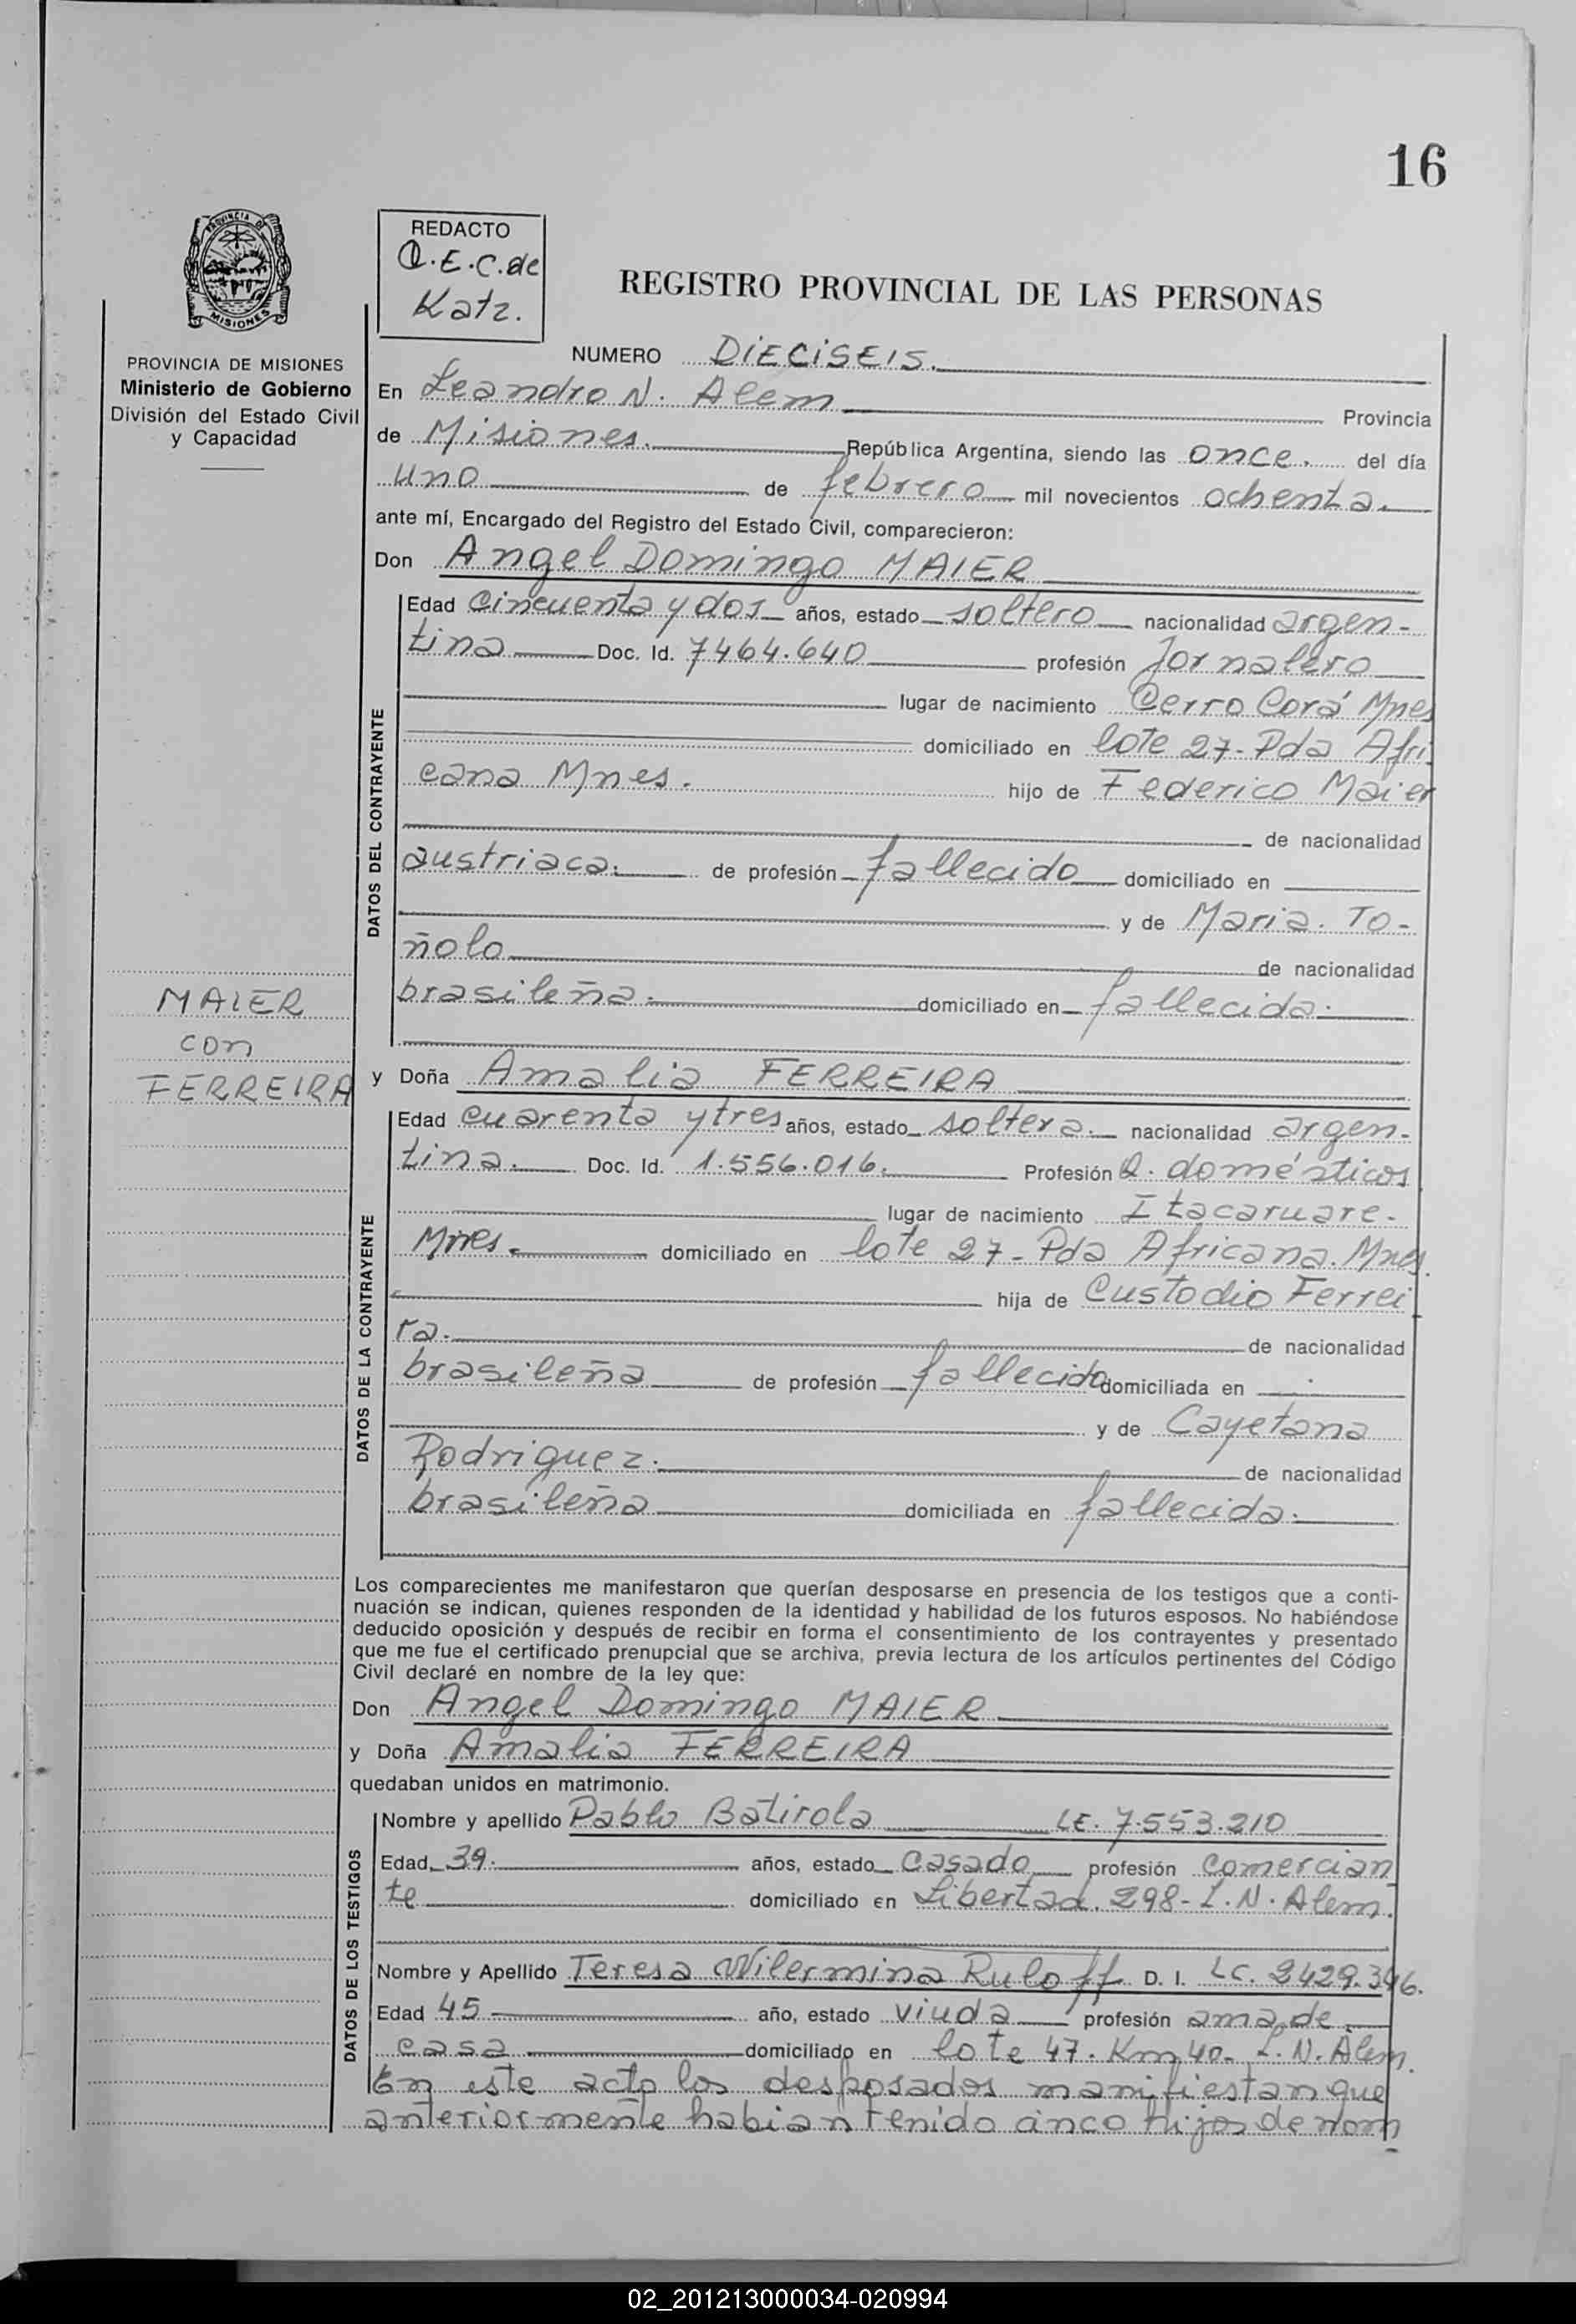 16
PROVINCIA DE
MISIONES
REDACTO
Q.E.C.de
Katz.
REGISTRO PROVINCIAL DE LAS PERSONAS
PROVINCIA DE MISIONES
Ministerio de Gobierno
División del Estado Civil
y Capacidad
NUMERO DIECISEIS.
En Leandro N. Alem Provincia
de Misiones. República Argentina, siendo las once. del día
uno de febrero mil novecientos ochenta.
ante mí, Encargado del Registro del Estado Civil, comparecieron:
Don Angel Domingo MAIER
DATOS DEL CONTRAYENTE
Edad cincuenta y dos años, estado soltero nacionalidad argen-
tina Doc. Id. 7464.640 profesión Jornalero
lugar de nacimiento Cerro Corá Mnes
domiciliado en lote 27- Pda Afri
cana Mnes. hijo de Federico Maier
de nacionalidad
austriaca. de profesión fallecido domiciliado en
y de Maria. To-
ñolo de nacionalidad
brasileña. domiciliado en fallecida.
MAIER
con
FERREIRA
y Doña Amalia FERREIRA
DATOS DE LA CONTRAYENTE
Edad cuarenta y tres años, estado soltera. nacionalidad argen-
tina. Doc. Id. 1.556.016. Profesión Q. domésticos
lugar de nacimiento Itacaruare-
Mnes. domiciliado en lote 27- Pda Africana. Mnes.
hija de Custodio Ferrei
ra. de nacionalidad
brasileña de profesión fallecido domiciliada en
y de Cayetana
Rodriguez. de nacionalidad
brasileña domiciliada en fallecida.
Los comparecientes me manifestaron que querían desposarse en presencia de los testigos que a conti-
nuación se indican, quienes responden de la identidad y habilidad de los futuros esposos. No habiéndose
deducido oposición y después de recibir en forma el consentimiento de los contrayentes y presentado
que me fue el certificado prenupcial que se archiva, previa lectura de los artículos pertinentes del Código
Civil declaré en nombre de la ley que:
Don Angel Domingo MAIER
y Doña Amalia FERREIRA
quedaban unidos en matrimonio.
DATOS DE LOS TESTIGOS
Nombre y apellido Pablo Batirola LE. 7.553.210
Edad 39. años, estado Casado profesión comercian
te domiciliado en Libertad. 298- L.N. Alem.
Nombre y Apellido Teresa Wilermina Ruloff D. I. LC. 2429.346.
Edad 45 año, estado viuda profesión ama de
casa domiciliado en lote 47. Km 40- L.N. Alem.
En este acto los desposados manifiestan que
anteriormente habian tenido cinco hijos de nom
02_201213000034-020994